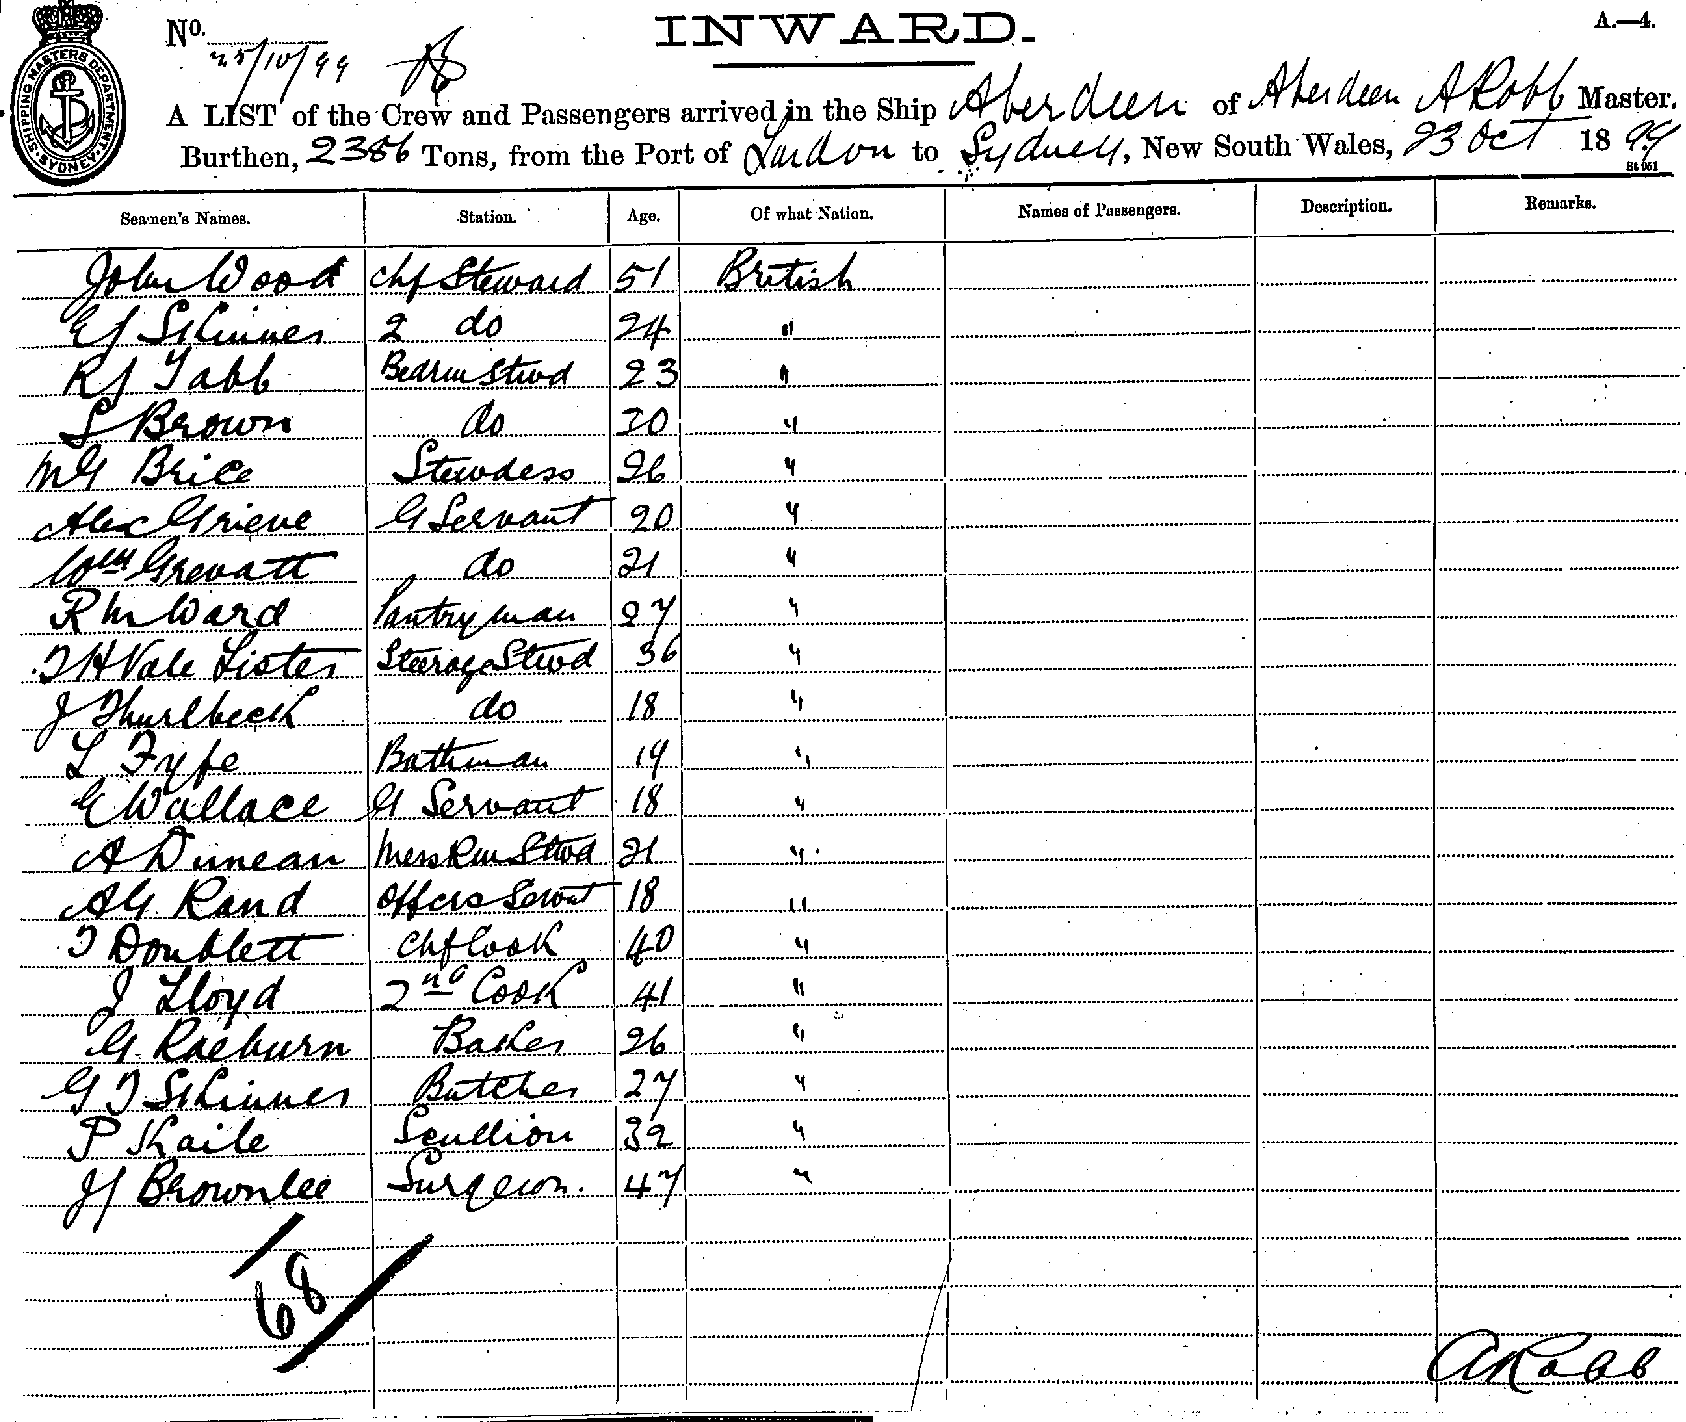 INWARD.
A.—4.
No.
25/10/99
SHIPPING MASTERS DEPARTMENT SYDNEY
A LIST of the Crew and Passengers arrived in the Ship Aberdeen of Aberdeen A Robb Master.
Burthen, 2386 Tons, from the Port of London to Sydney, New South Wales, 23 Oct 1899
Seamen's Names. Station. Age. Of what Nation. Names of Passengers. Description. Remarks.
John Wood Chf Steward 51 British
EJ Skinner 2 do 24 "
RJ Tabb Bedrm Stwd 23 "
S Brown do 30 "
MG Brice Stewdess 26 "
Alex Grieve G Servant 20 "
Wm Grevatt do 21 "
R M Ward Pantryman 27 "
T H Vale Lister Steerage Stwd 36 "
J Thurlbeck do 18 "
L Fyfe Bathman 19 "
E Wallace G Servant 18 "
A Duncan Mess Rm Stwd 21 "
AG Rand Offcrs Servnt 18 "
T Doublett Chf Cook 40 "
J Lloyd 2nd Cook 41 "
G. Raeburn Baker 26 "
G T Skinner Butcher 27 "
P Kaile Scullion 32 "
JJ Brownlee Surgeon. 47 "
/68/
A Robb